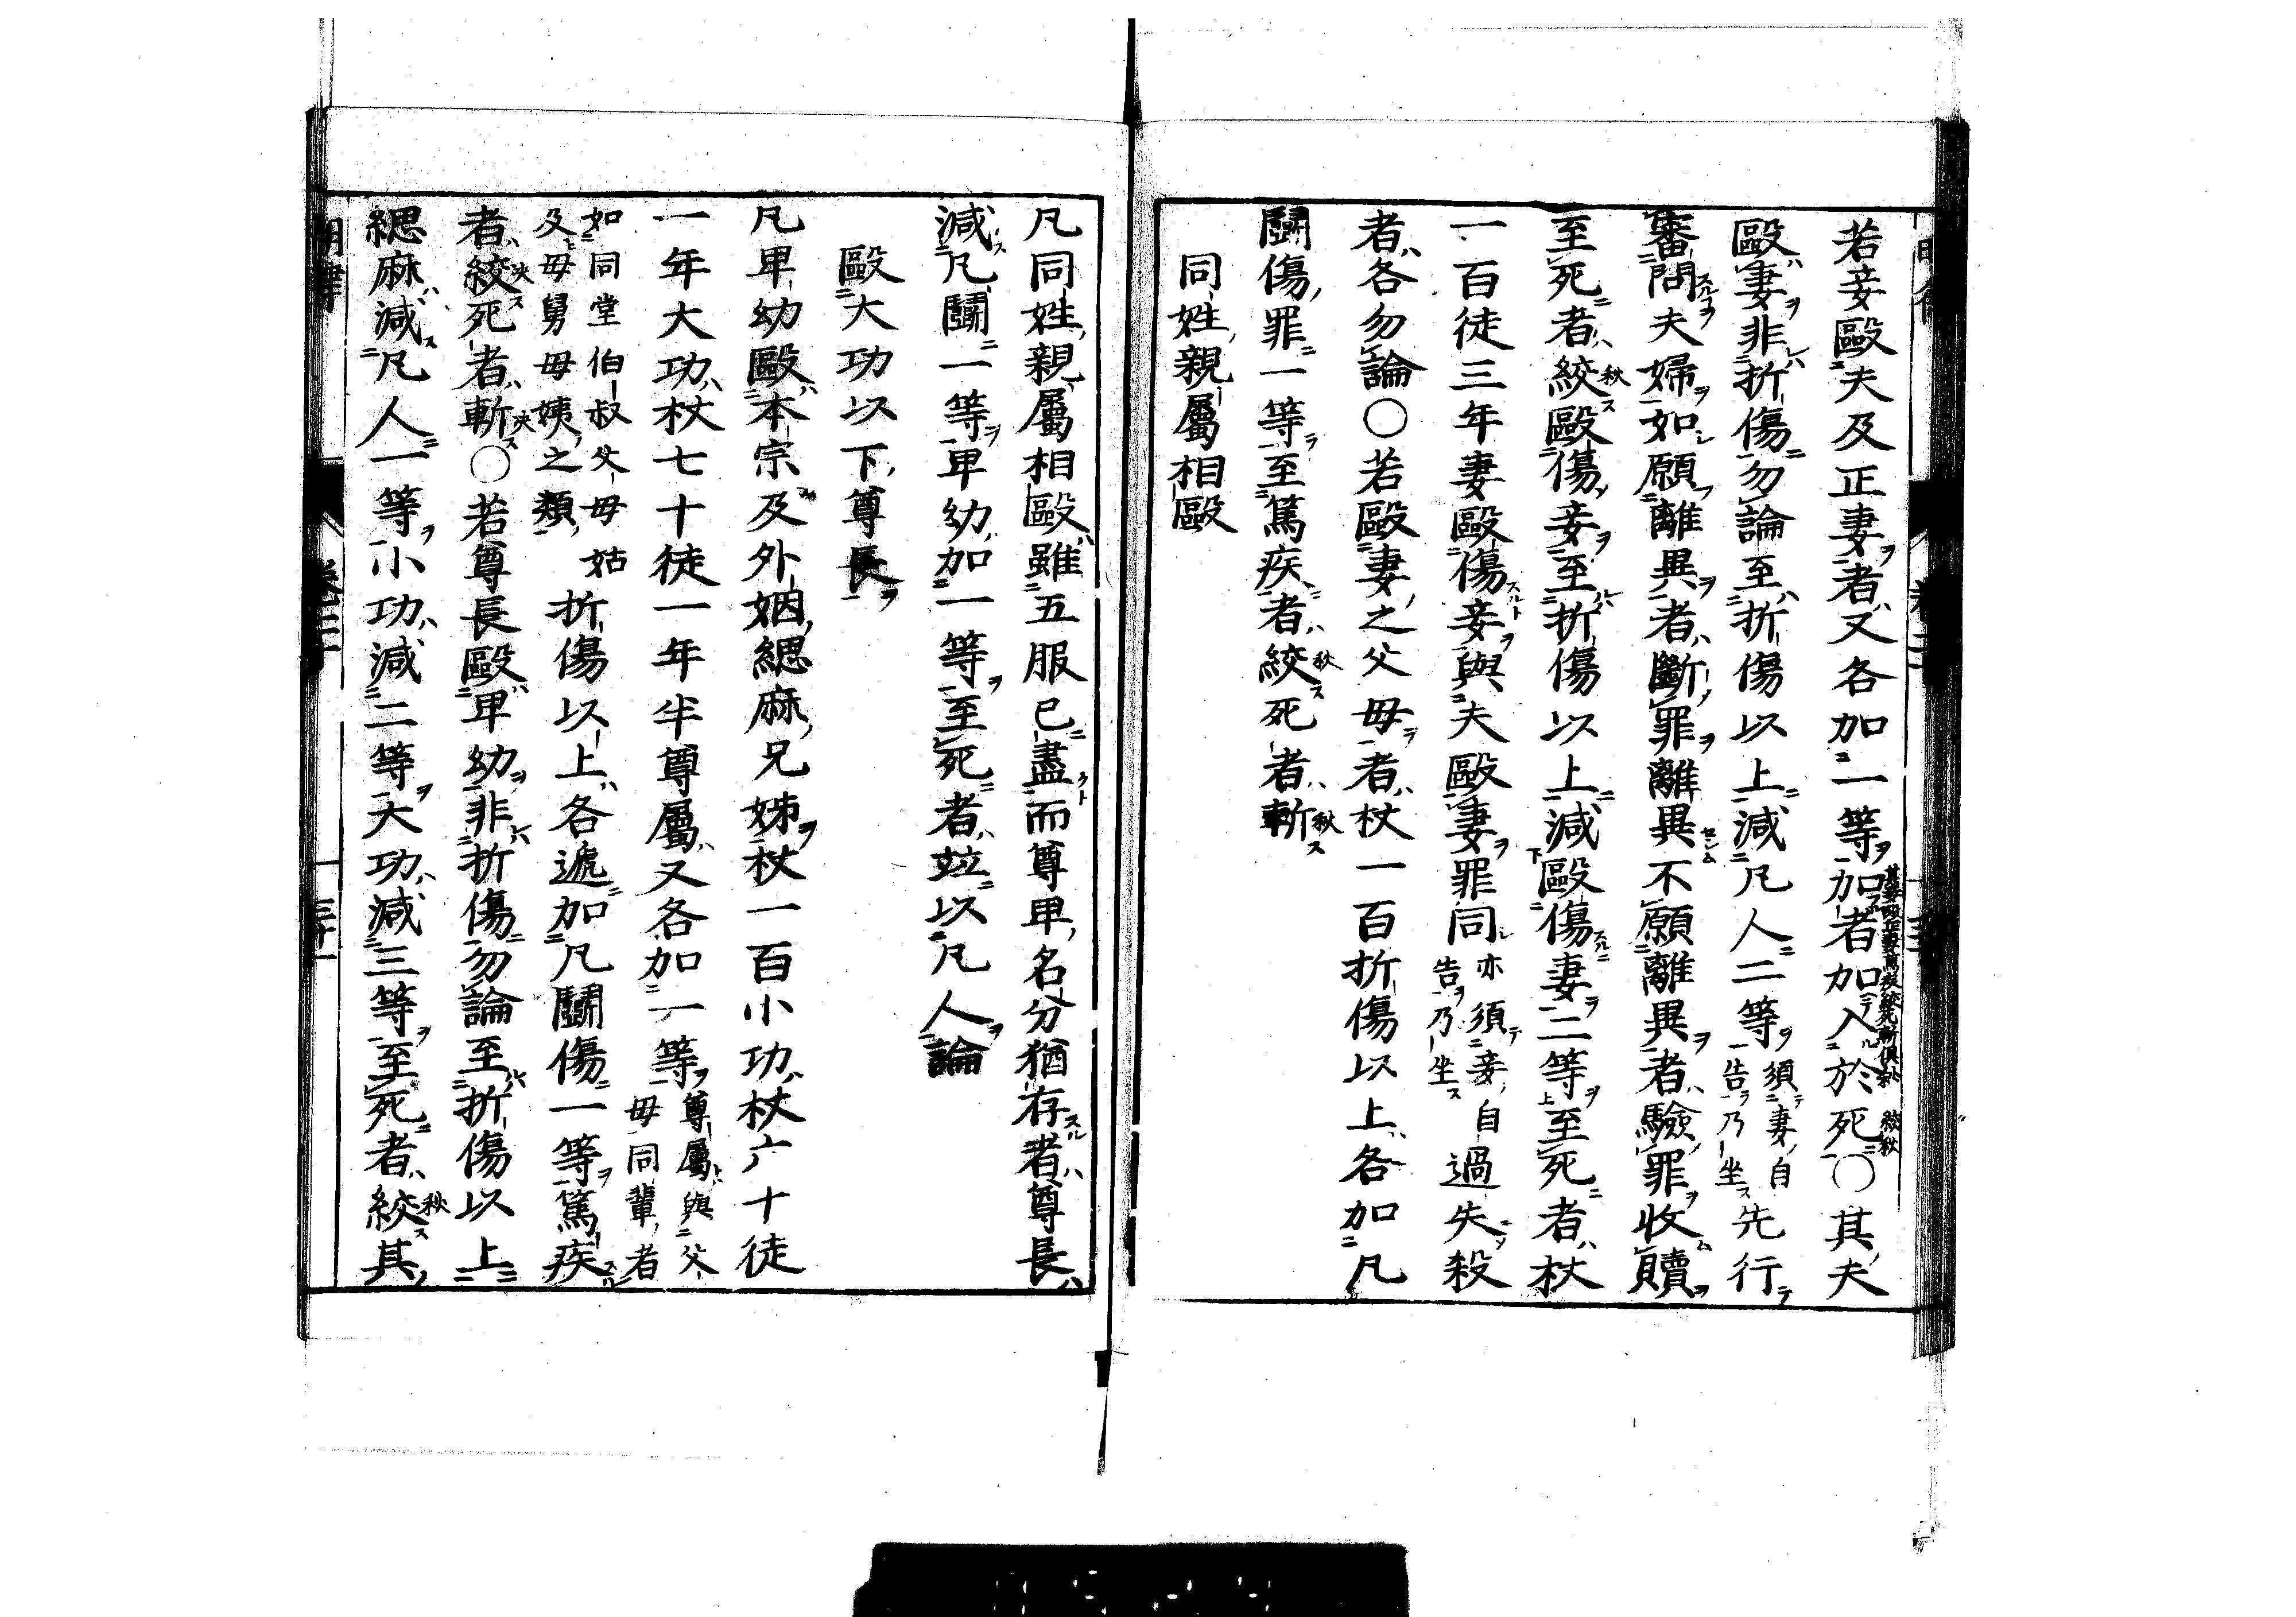 若妾毆夫及正妻者又各加一等加者加入於死〇其夫
毆妻非折傷勿論至折傷以上減凡人二等須妻自告乃坐先行
審問夫婦如願離異者斷罪離異不願離異者驗罪收贖
至死者絞毆傷妾至折傷以上減毆傷妻二等至死者杖
一百徒三年妻毆傷妾與夫毆妻罪同亦須妾自告乃坐過失殺
者各勿論〇若毆妻之父母者杖一百折傷以上各加凡
鬭傷罪一等至篤疾者絞死者斬
同姓親屬相毆
凡同姓親屬相毆雖五服已盡而尊卑名分猶存者尊長
減凡鬭一等卑幼加一等至死者竝以凡人論
毆大功以下尊長
凡卑幼毆本宗及外姻緦麻兄姊杖一百小功杖六十徒
一年大功杖七十徒一年半尊屬又各加一等尊屬與父母同輩者
如同堂伯叔父母姑及母舅母姨之類折傷以上各遞加凡鬭傷一等篤疾
者絞死者斬〇若尊長毆卑幼非折傷勿論至折傷以上
緦麻減凡人一等小功減二等大功減三等至死者絞其